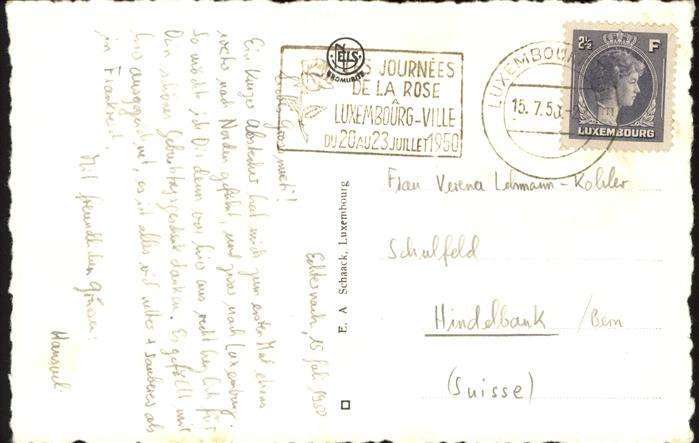 Echternach, 15. Juli 1950
Liebe Grossmueti!
Ein kurzer Abstecher hat mich zum ersten Mal etwas
weiter nach Norden geführt, und zwar nach Luxemburg.
So möcht ich Dir denn von hier aus recht herzlich für
Dein schönes Geburtstagsgeschenk danken. Es gefällt mir
hier ausgezeichnet, es ist alles viel netter + sauberer als
in Frankreich.
Mit freundlichen Grüssen!
Hansueli
ELS
BROMURITE
LES JOURNÉES
DE LA ROSE
LUXEMBOURG-VILLE
DU 20 AU 23 JUILLET 1950
LUXEMBOURG
15.7.50
2½ F
LUXEMBOURG
E. A. Schaack, Luxembourg
Frau Verena Lehmann-Kohler
Schulfeld
Hindelbank / Bern
(Suisse)